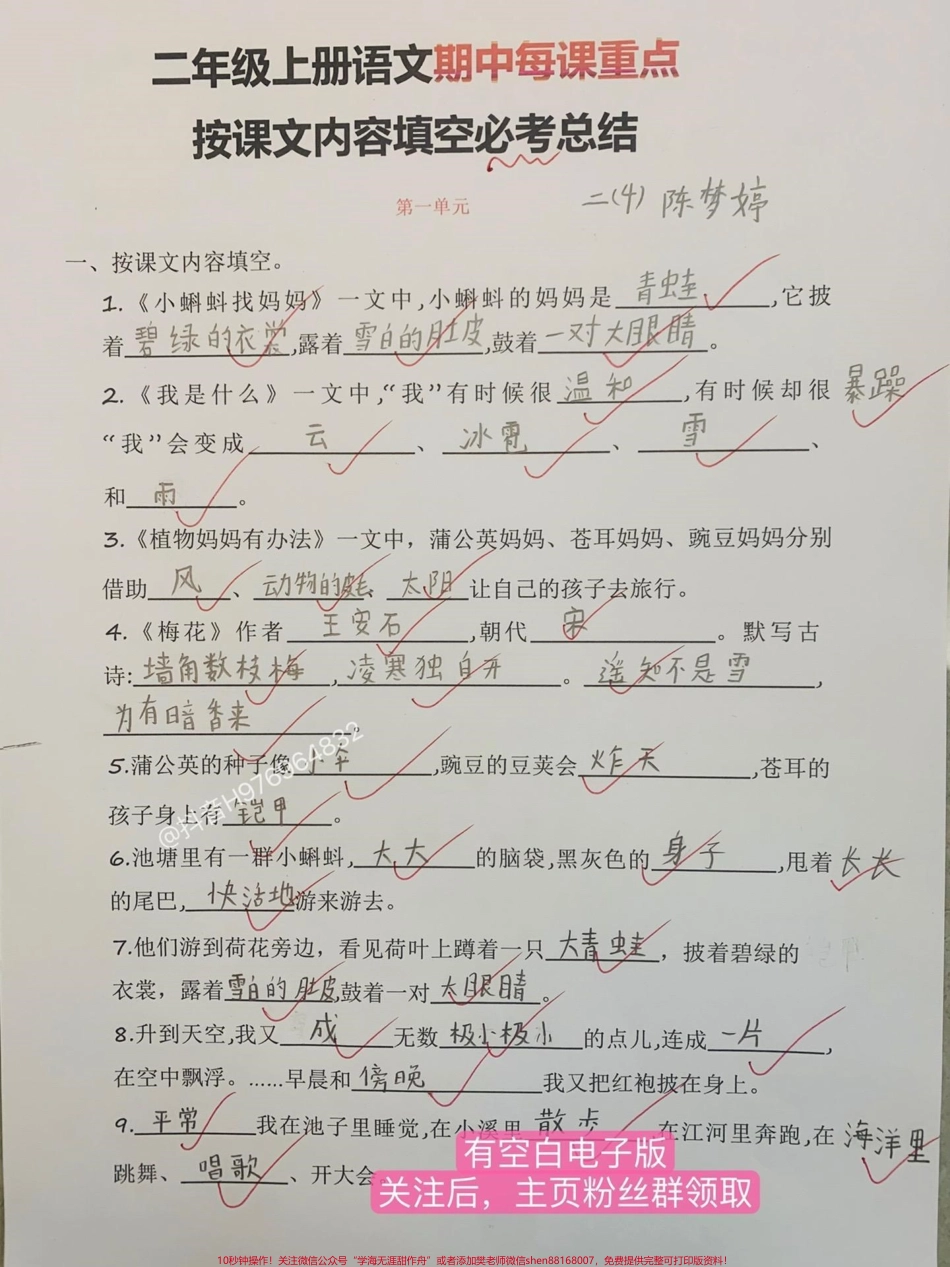 二年级上册语文期中每课重点
按课文内容填空必考总结
第一单元 二(4) 陈梦婷
一、按课文内容填空。
1.《小蝌蚪找妈妈》一文中,小蝌蚪的妈妈是青蛙,它披
着碧绿的衣裳,露着雪白的肚皮,鼓着一对大眼睛。
2.《我是什么》一文中,“我”有时候很温和,有时候却很暴躁
“我”会变成云、冰雹、雪、
和雨。
3.《植物妈妈有办法》一文中，蒲公英妈妈、苍耳妈妈、豌豆妈妈分别
借助风、动物的皮毛、太阳让自己的孩子去旅行。
4.《梅花》作者王安石,朝代宋。默写古
诗:墙角数枝梅,凌寒独自开。遥知不是雪,
为有暗香来。
5.蒲公英的种子像小伞,豌豆的豆荚会炸天,苍耳的
孩子身上有铠甲。
6.池塘里有一群小蝌蚪,大大的脑袋,黑灰色的身子,甩着长长
的尾巴,快活地游来游去。
7.他们游到荷花旁边，看见荷叶上蹲着一只大青蛙，披着碧绿的
衣裳，露着雪白的肚皮,鼓着一对大眼睛。
8.升到天空,我又成无数极小极小的点儿,连成一片,
在空中飘浮。……早晨和傍晚我又把红袍披在身上。
9.平常我在池子里睡觉,在小溪里散步在江河里奔跑,在海洋里
跳舞、唱歌、开大会。
@抖音H976964832
有空白电子版
关注后，主页粉丝群领取
10秒钟操作！关注微信公众号“学海无涯甜作舟”或者添加樊老师微信shen88168007，免费提供完整可打印版资料！